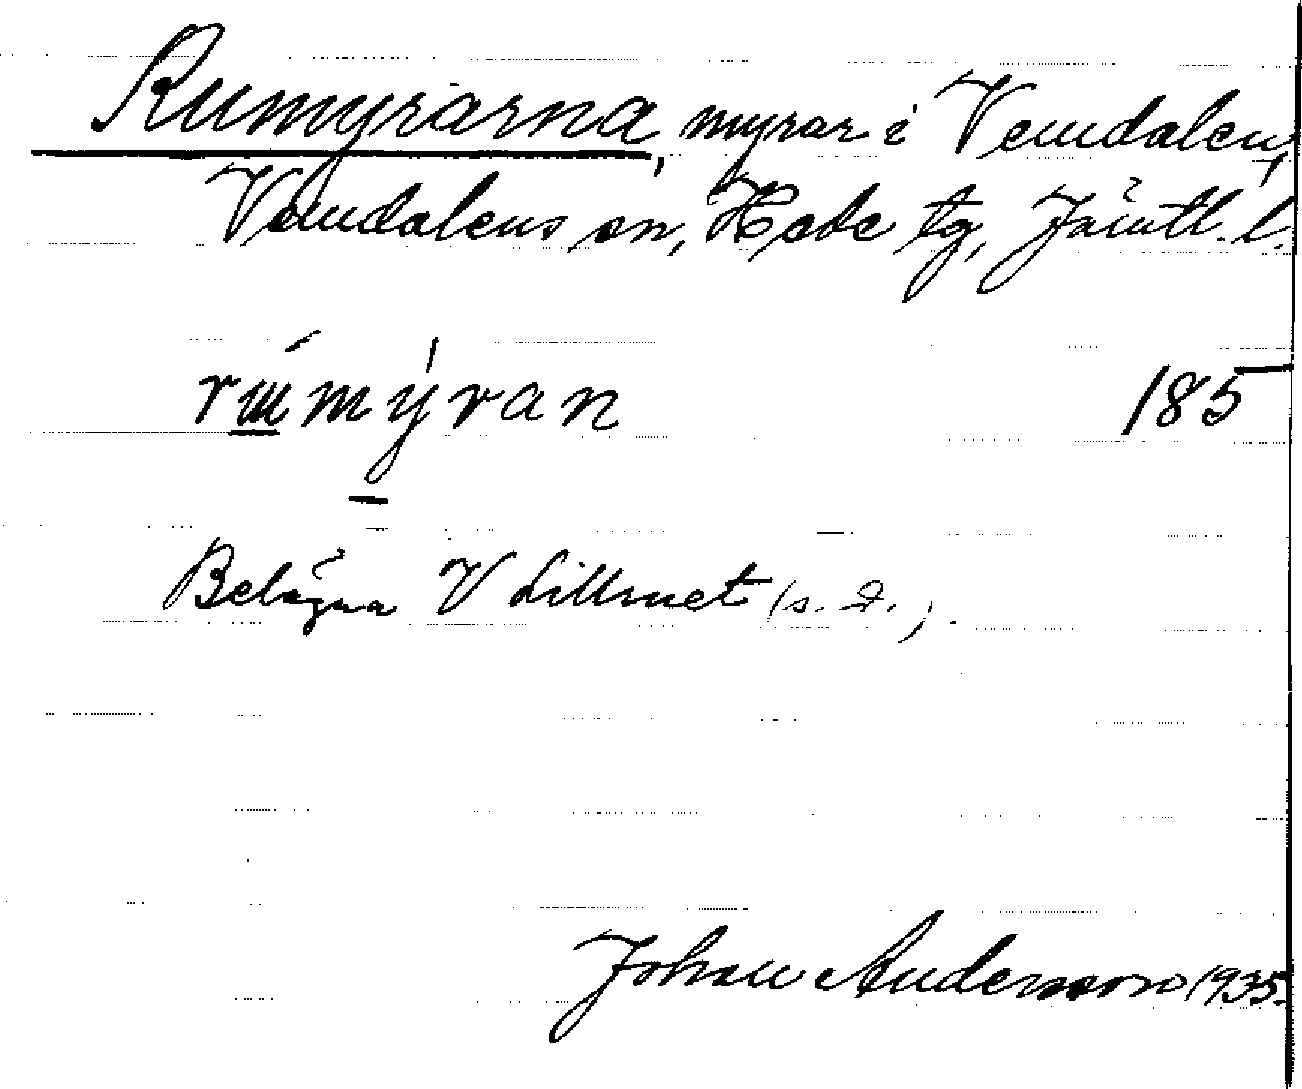 Rumyrarna, myrar i Vemdalen,
Vemdalens sn, Hede tg, Jämtl. l.
rúmýran 185
Belägna V Lillmet (s. d.).
Johan Andersson 1935.